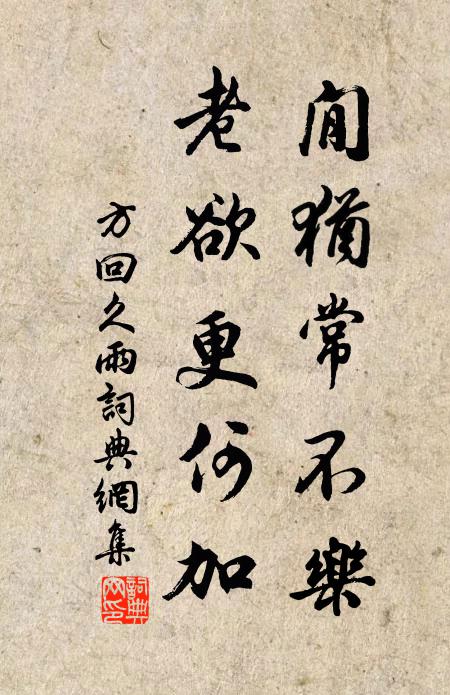 閒猶常不樂
老欲更何加
方回久雨詞典網集
詞典
网印